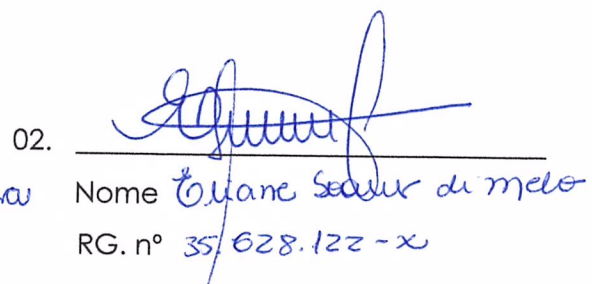 02.
Nome Eliane Soares de melo
RG. nº 35.628.122-x